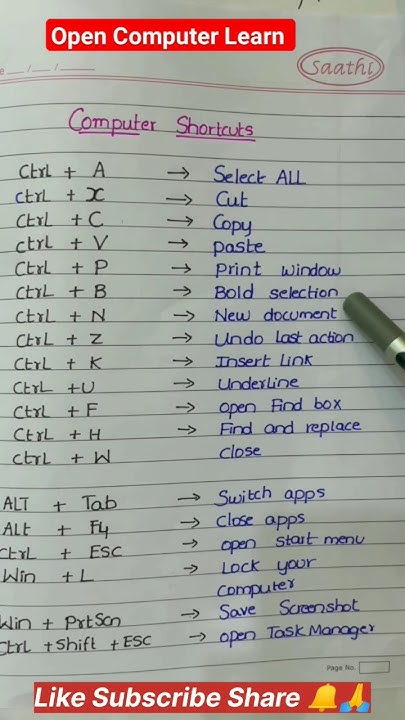 Open Computer Learn
Saathi
Computer Shortcuts
Ctrl + A → Select ALL
ctrl + X → Cut
Ctrl + C → Copy
ctrl + V → paste
Ctrl + P → Print window
Ctrl + B → Bold selection
Ctrl + N → New document
Ctrl + Z → Undo last action
Ctrl + K → Insert link
Ctrl + U → Underline
Ctrl + F → open Find box
Ctrl + H → Find and replace
Ctrl + W close
ALT + Tab → Switch apps
Alt + F4 → Close apps
Ctrl + ESC → open start menu
Win + L → Lock your
computer
Win + PrtScn → Save Screenshot
Ctrl + Shift + ESC → open Task Manager
Page No.
Like Subscribe Share 🔔🙏